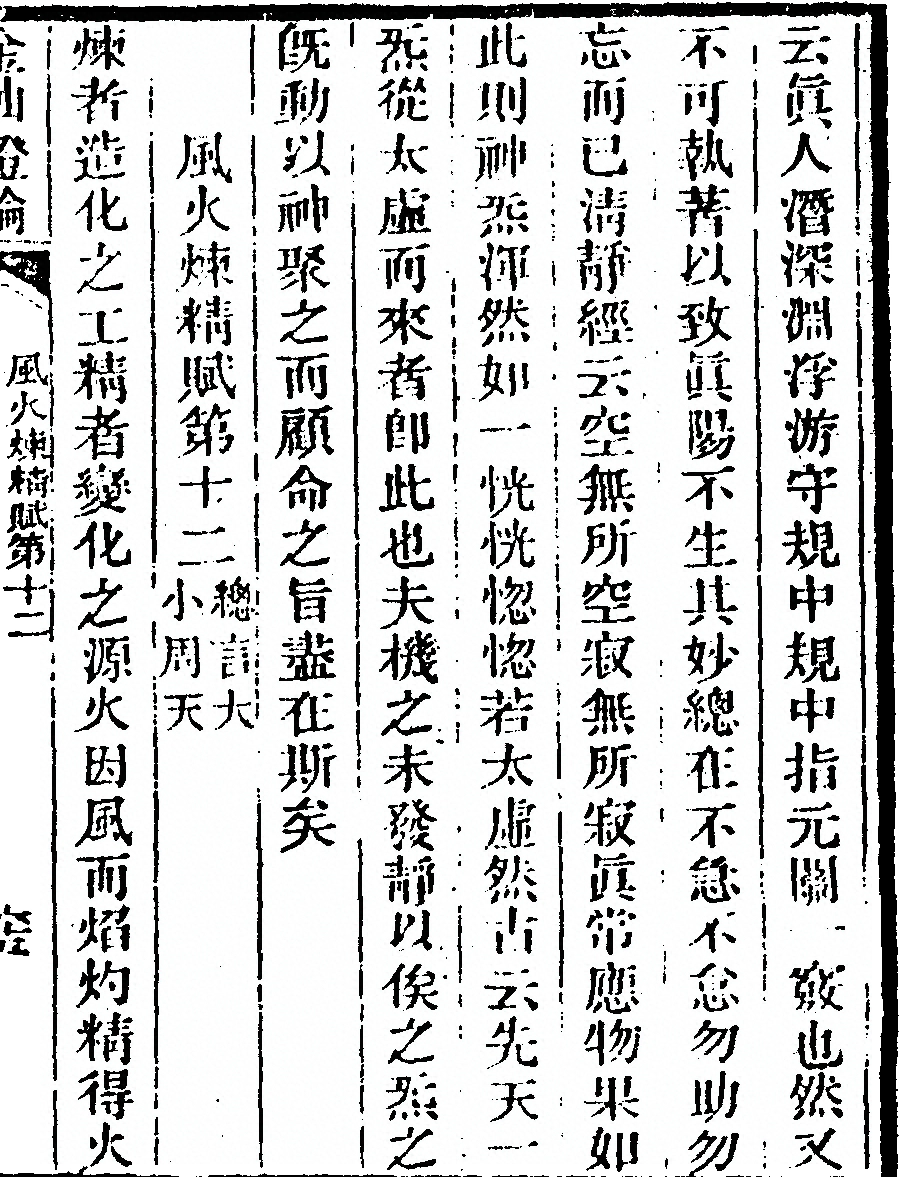 云眞人潛深淵浮游守規中規中指元關一竅也然又
不可執著以致眞陽不生其妙總在不急不怠勿助勿
忘而已淸靜經云空無所空寂無所寂眞常應物果如
此則神炁渾然如一恍恍惚惚若太虛然古云先天一
炁從太虛而來者卽此也夫機之未發靜以俟之炁之
旣動以神聚之而顧命之旨盡在斯矣
風火煉精賦第十二總言大小周天
煉者造化之工精者變化之源火因風而焰灼精得火
金仙證論 風火煉精賦第十二